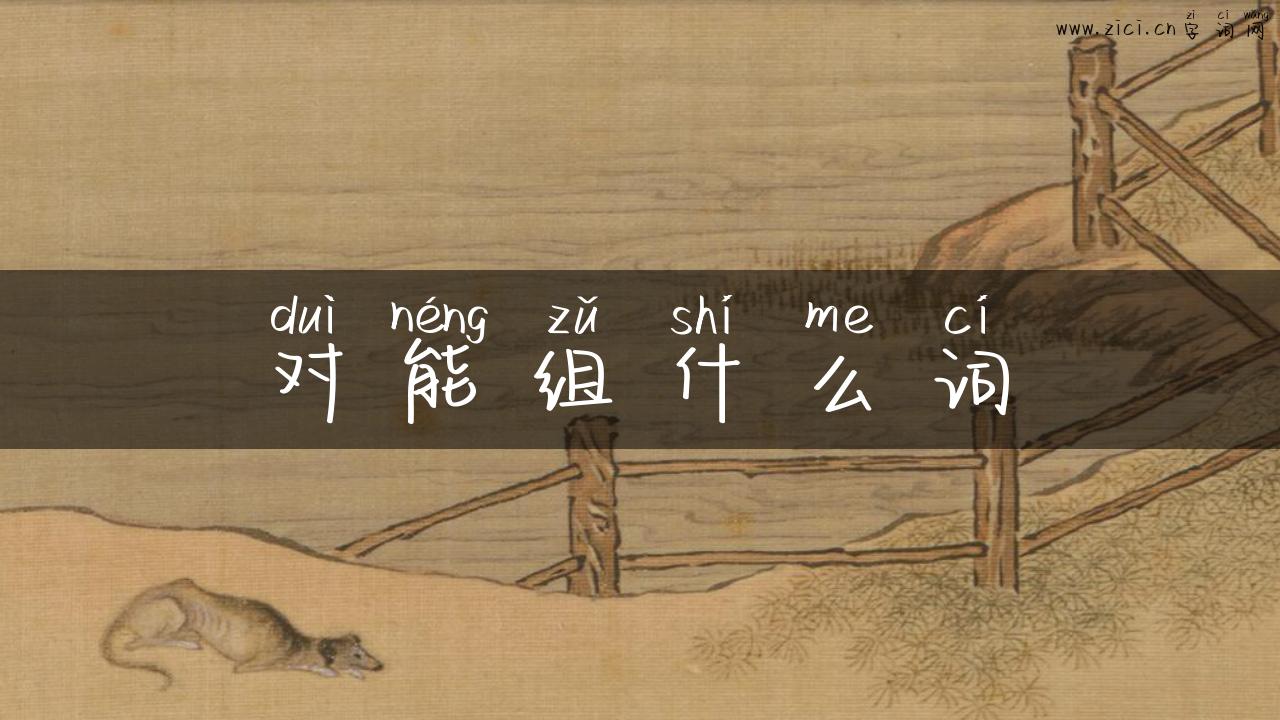 zì cí wǎng
www.zici.cn 字词网
duì néng zǔ shí me cí
对能组什么词